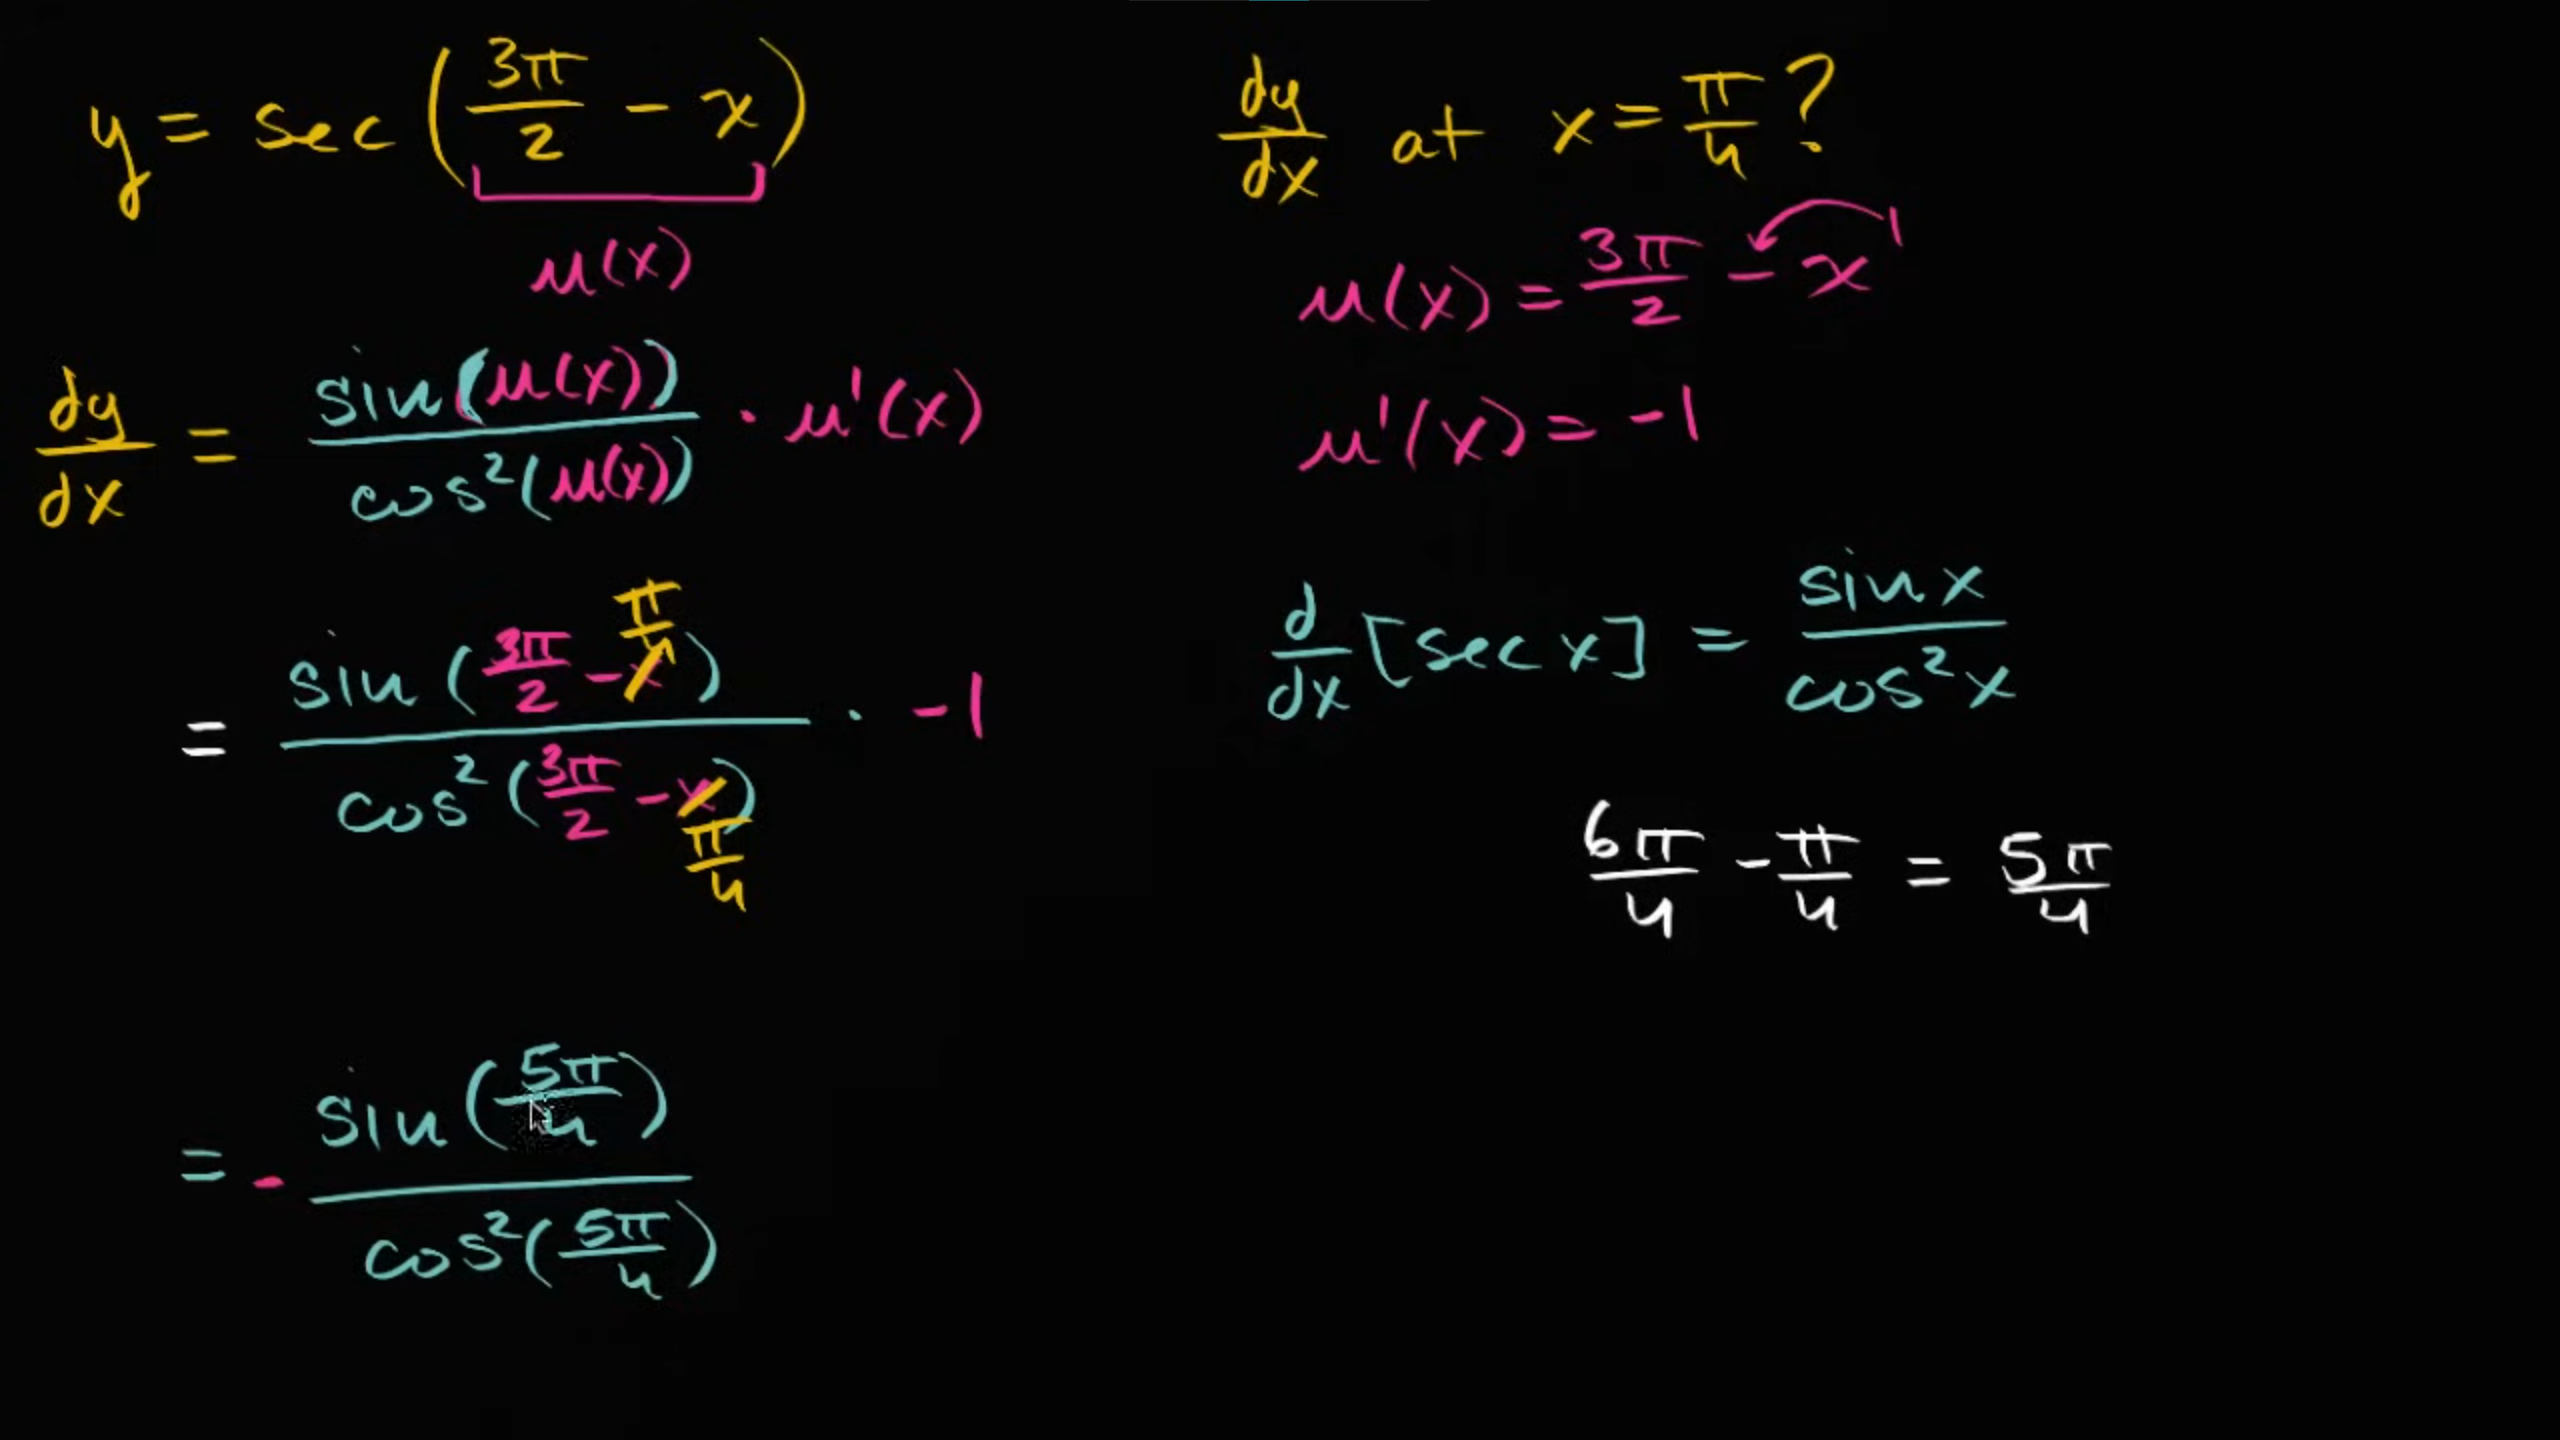 y = sec(3π/2 - x)
u(x)
dy/dx = sin(u(x))/cos²(u(x)) · u'(x)
= sin(3π/2 - x π/4)/cos²(3π/2 - x π/4) · -1
= - sin(5π/4)/cos²(5π/4)
dy/dx at x = π/4 ?
u(x) = 3π/2 - x¹
u'(x) = -1
d/dx [sec x] = sin x/cos² x
6π/4 - π/4 = 5π/4